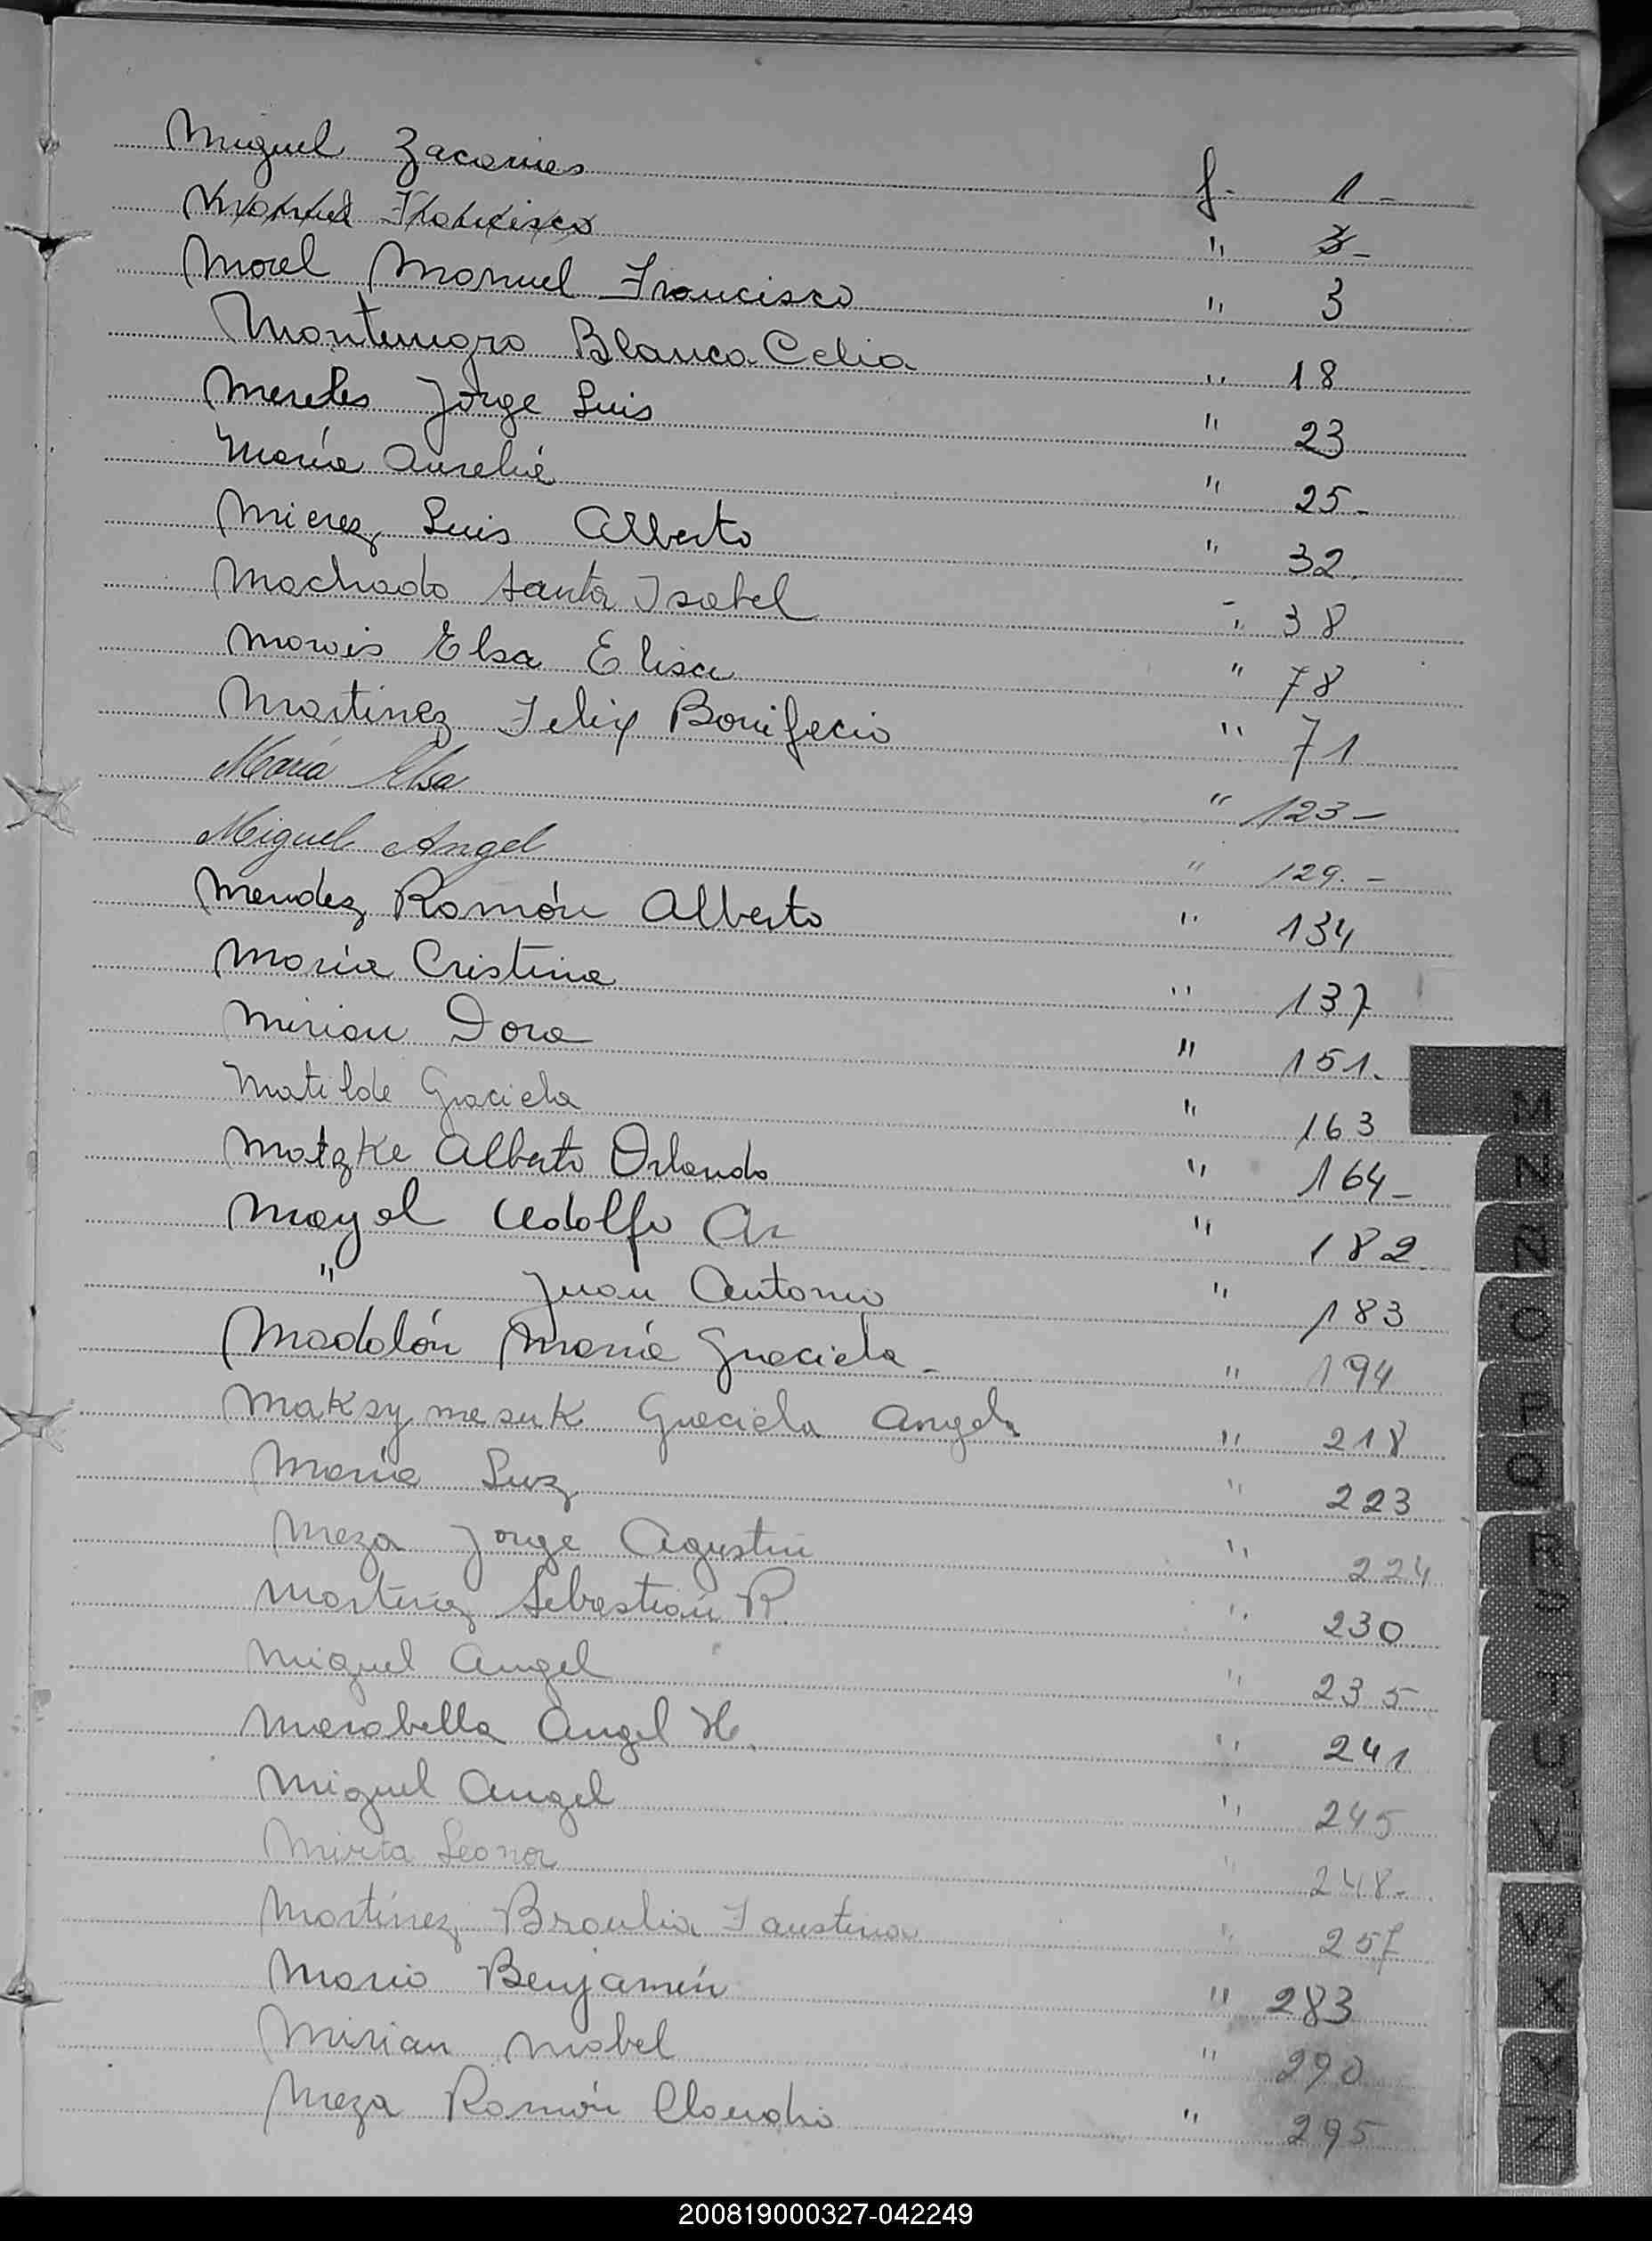 Miguel Zacarias f. 1 -
Manuel Francisco " 3 -
Morel Manuel Francisco " 3
Montenegro Blanca Celia " 18
Mereles Jorge Luis " 23
María Aurelia " 25 -
Mierez Luis Alberto " 32.
Machado Santa Isabel " 38
Morais Elsa Elisa " 78
Martinez Felix Bonifacio " 71
María Elsa " 123 -
Miguel Angel " 129. -
Mendez Ramón Alberto " 134
María Cristina " 137
Mirian Dora " 151.
Matilde Graciela " 163
Matzke Alberto Orlando " 164 -
Mayol Adolfo Ar " 182
" Juan Antonio " 183
Madalón María Graciela - " 194
Maksymesuk Graciela Angela " 218
María Luz " 223
Meza Jorge Agustin " 224
Martinez Sebastián R. " 230
Miguel Angel " 235
Marabella Angel H. " 241
Miguel Angel " 245
Mirta Leonor " 248 -
Martínez Braulia Faustina " 257
Mario Benjamín " 283
Mirian Mabel " 290
Meza Ramón Claudio " 295
M
N
Ñ
O
P
Q
R
S
T
U
V
W
X
Y
Z
200819000327-042249